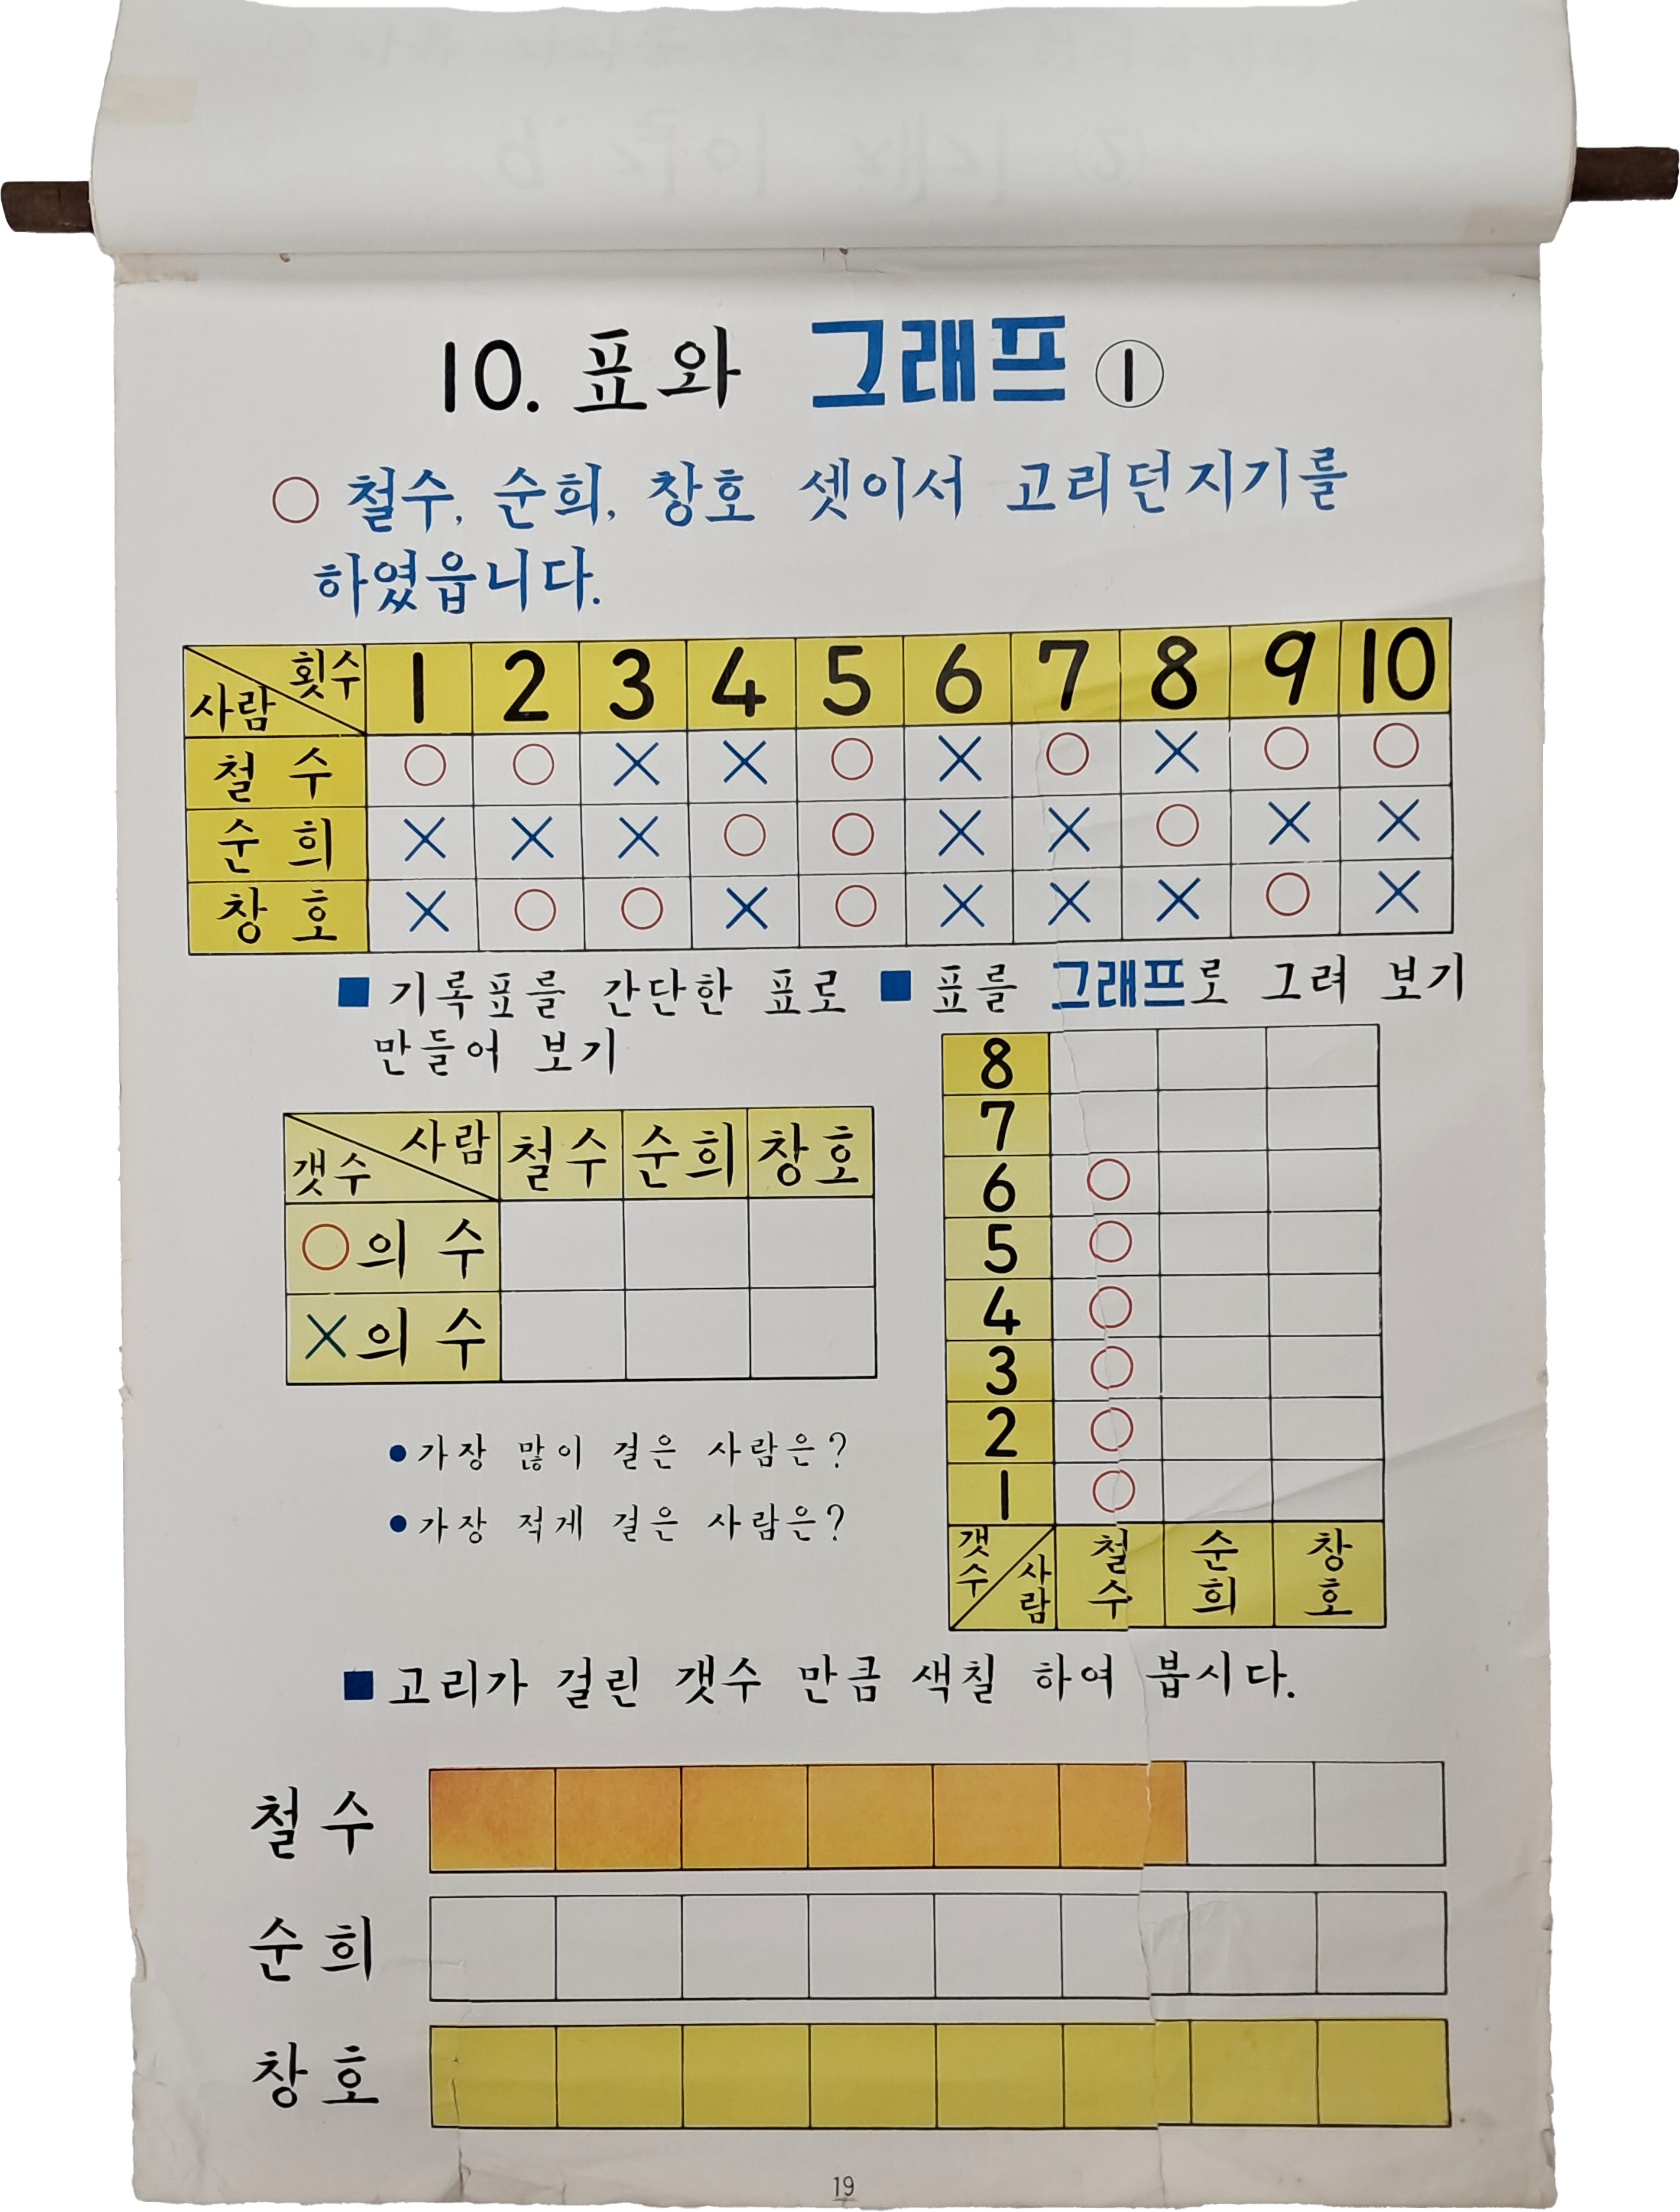 10. 표와 그래프 ①
○ 철수, 순희, 창호 셋이서 고리던지기를
하였읍니다.
횟수 사람 1 2 3 4 5 6 7 8 9 10
철수 ○ ○ × × ○ × ○ × ○ ○
순희 × × × ○ ○ × × ○ × ×
창호 × ○ ○ × ○ × × × ○ ×
■ 기록표를 간단한 표로
만들어 보기
사람 갯수 철수 순희 창호
○의 수
×의 수
● 가장 많이 걸은 사람은?
● 가장 적게 걸은 사람은?
■ 표를 그래프로 그려 보기
8
7
6 ○
5 ○
4 ○
3 ○
2 ○
1 ○
갯수 사람 철수 순희 창호
■ 고리가 걸린 갯수 만큼 색칠 하여 봅시다.
철수
순희
창호
19